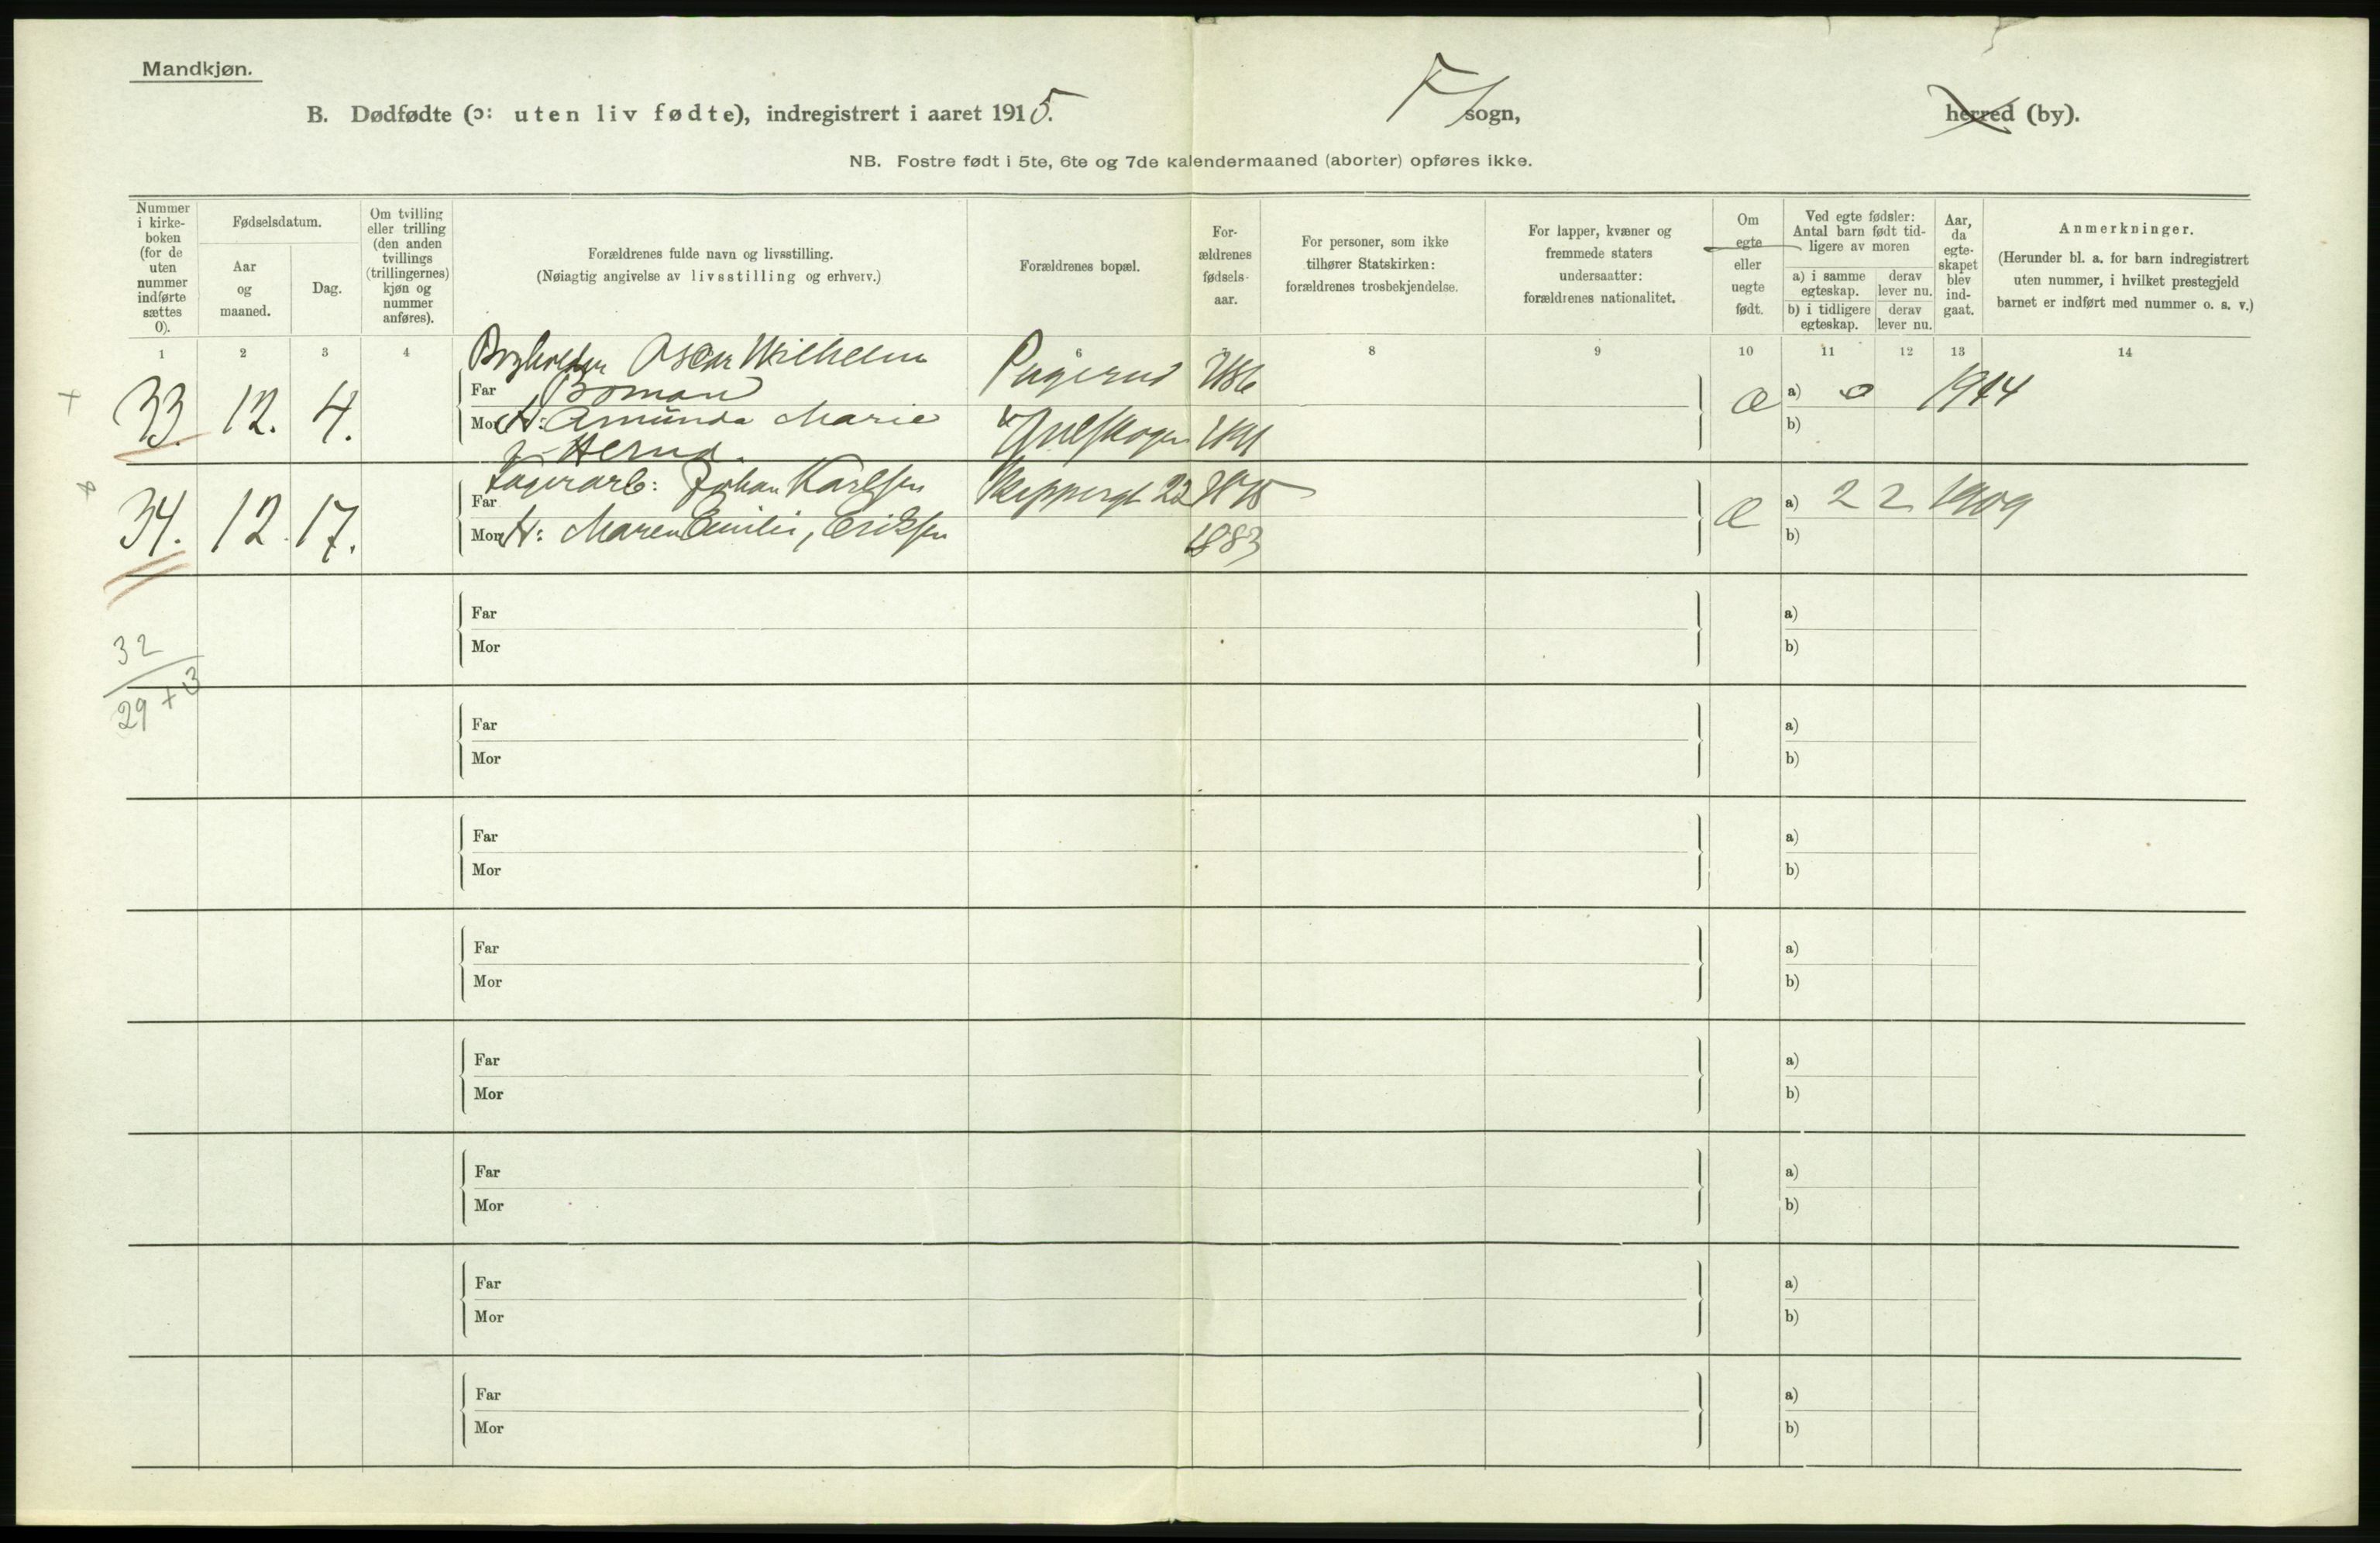 Mandkjøn.
B. Dødfødte (ɔ: uten liv fødte), indregistrert i aaret 1915.
sogn,
herred (by).
NB. Fostre født i 5te, 6te og 7de kalendermaaned (aborter) opføres ikke.
Nummer i kirke-boken (for de uten nummer indførte sættes 0).
Fødselsdatum.
Aar og maaned.
Dag.
Om tvilling eller trilling (den anden tvillings (trillingernes) kjøn og nummer anføres).
Forældrenes fulde navn og livsstilling.
(Nøiagtig angivelse av livsstilling og erhverv.)
Forældrenes bopæl.
For-ældrenes fødsels-aar.
For personer, som ikke tilhører Statskirken: forældrenes trosbekjendelse.
For lapper, kvæner og fremmede staters undersaatter: forældrenes nationalitet.
Om egte eller uegte født.
Ved egte fødsler: Antal barn født tid-ligere av moren
a) i samme egteskap.
derav lever nu.
b) i tidligere egteskap.
derav lever nu.
Aar, da egte-skapet blev ind-gaat.
Anmerkninger.
(Herunder bl. a. for barn indregistrert uten nummer, i hvilket prestegjeld barnet er indført med nummer o. s. v.)
1 2 3 4 6 8 9 10 11 12 13 14
33. 12. 4.
Oscar Wilhelm
Far Boman
Mor H: Amunda Marie
Herud.
1886
Æ a) 0 1914
b)
34. 12. 17.
Lagerarb: Johan Karlsen
Far
Mor H: Maren Emilie, Eriksen
22
1883
Æ a) 2 2 1909
b)
32
29 + 3
Far a)
Mor b)
Far a)
Mor b)
Far a)
Mor b)
Far a)
Mor b)
Far a)
Mor b)
Far a)
Mor b)
Far a)
Mor b)
Far a)
Mor b)